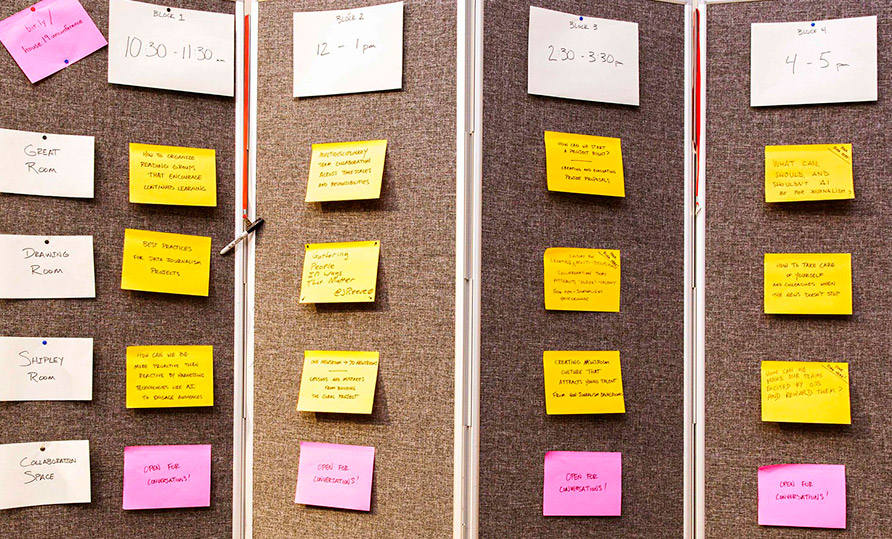 bit.ly/
house19unconference
BLOCK 1
10:30 - 11:30 am
BLOCK 2
12 - 1 pm
BLOCK 3
2:30 - 3:30 pm
BLOCK 4
4 - 5 pm
GREAT
ROOM
HOW TO ORGANIZE
READING GROUPS
THAT ENCOURAGE
CONTINUED LEARNING
MULTIDISCIPLINARY
TEAM COLLABORATION
ACROSS TIMESCALES
AND RESPONSIBILITIES
HOW CAN WE START
A PROJECT RIGHT?
CREATING AND EVALUATING
PROPOSALS
WHAT CAN,
SHOULD, AND
SHOULDN'T AI
BE FOR JOURNALISM?
DRAWING
ROOM
BEST PRACTICES
FOR DATA JOURNALISM
PROJECTS
Gathering
People
In Ways
That Matter
@JReeve
COLLABORATION THAT
ATTRACTS TALENT
FROM NON-JOURNALISM
BACKGROUNDS
HOW TO TAKE CARE
OF YOURSELF
AND COLLEAGUES WHEN
THE NEWS DOESN'T STOP
SHIPLEY
ROOM
HOW CAN WE BE
MORE PROACTIVE THAN
REACTIVE BY HARNESSING
TECHNOLOGIES LIKE AI
TO ENGAGE AUDIENCES
ONE NEWSROOM → 30 NEWSROOMS
LESSONS AND MISTAKES
FROM BUILDING
THE PROJECT
CREATING NEWSROOM
CULTURE THAT
ATTRACTS YOUNG TALENT
FROM NON-JOURNALISM BACKGROUNDS
HOW CAN WE
MAKE OUR TEAMS
EXCITED BY OJS
AND REWARD THEM?
COLLABORATION
SPACE
OPEN FOR
CONVERSATIONS!
OPEN FOR
CONVERSATIONS!
OPEN FOR
CONVERSATIONS!
OPEN FOR
CONVERSATIONS!